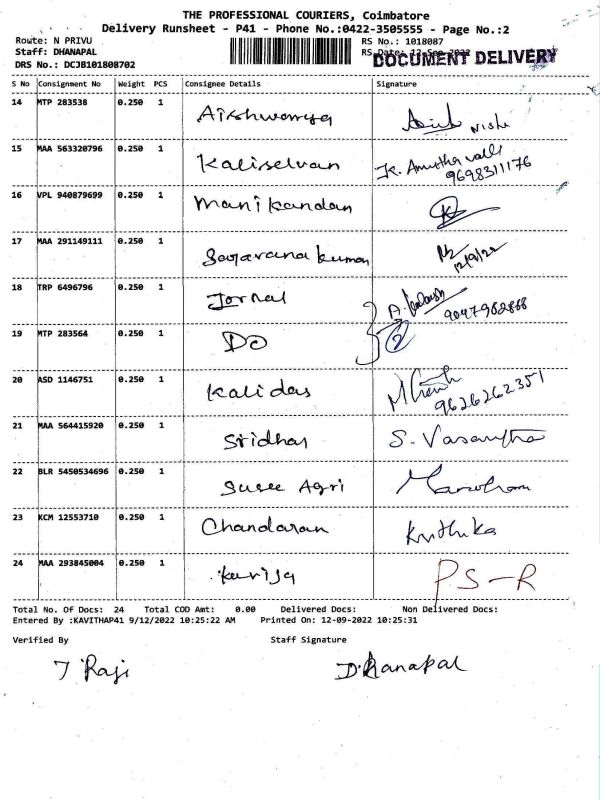 THE PROFESSIONAL COURIERS, Coimbatore
Delivery Runsheet - P41 - Phone No.:0422-3505555 - Page No.:2
Route: N PRIVU RS No.: 1018087
Staff: DHANAPAL RS Date: 12-Sep-2022
DOCUMENT DELIVERY
DRS No.: DCJB101808702
S No Consignment No Weight PCS Consignee Details Signature
14 MTP 283538 0.250 1 Aishwarya
15 MAA 563320796 0.250 1 Kaliselvan K. Amutha valli
9698311176
16 VPL 940879699 0.250 1 Manikandan
17 MAA 291149111 0.250 1 Saravana kumar 12/9/22
18 TRP 6496796 0.250 1 Jornal 9047982868
19 MTP 283564 0.250 1 Do 2
20 ASD 1146751 0.250 1 Kalidas 9626262351
21 MAA 564415920 0.250 1 Sridhar S. Vasantha
22 BLR 5450534696 0.250 1 Susee Agri Manoharan
23 KCM 12553710 0.250 1 Chandaran Krithika
24 MAA 293845004 0.250 1 PS-R
Total No. Of Docs: 24 Total COD Amt: 0.00 Delivered Docs: Non Delivered Docs:
Entered By :KAVITHAP41 9/12/2022 10:25:22 AM Printed On: 12-09-2022 10:25:31
Verified By Staff Signature
T Raji Dhanapal